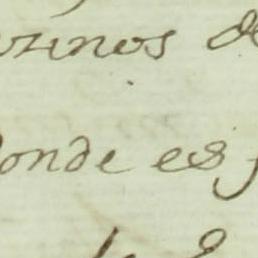 vzinos de
donde es